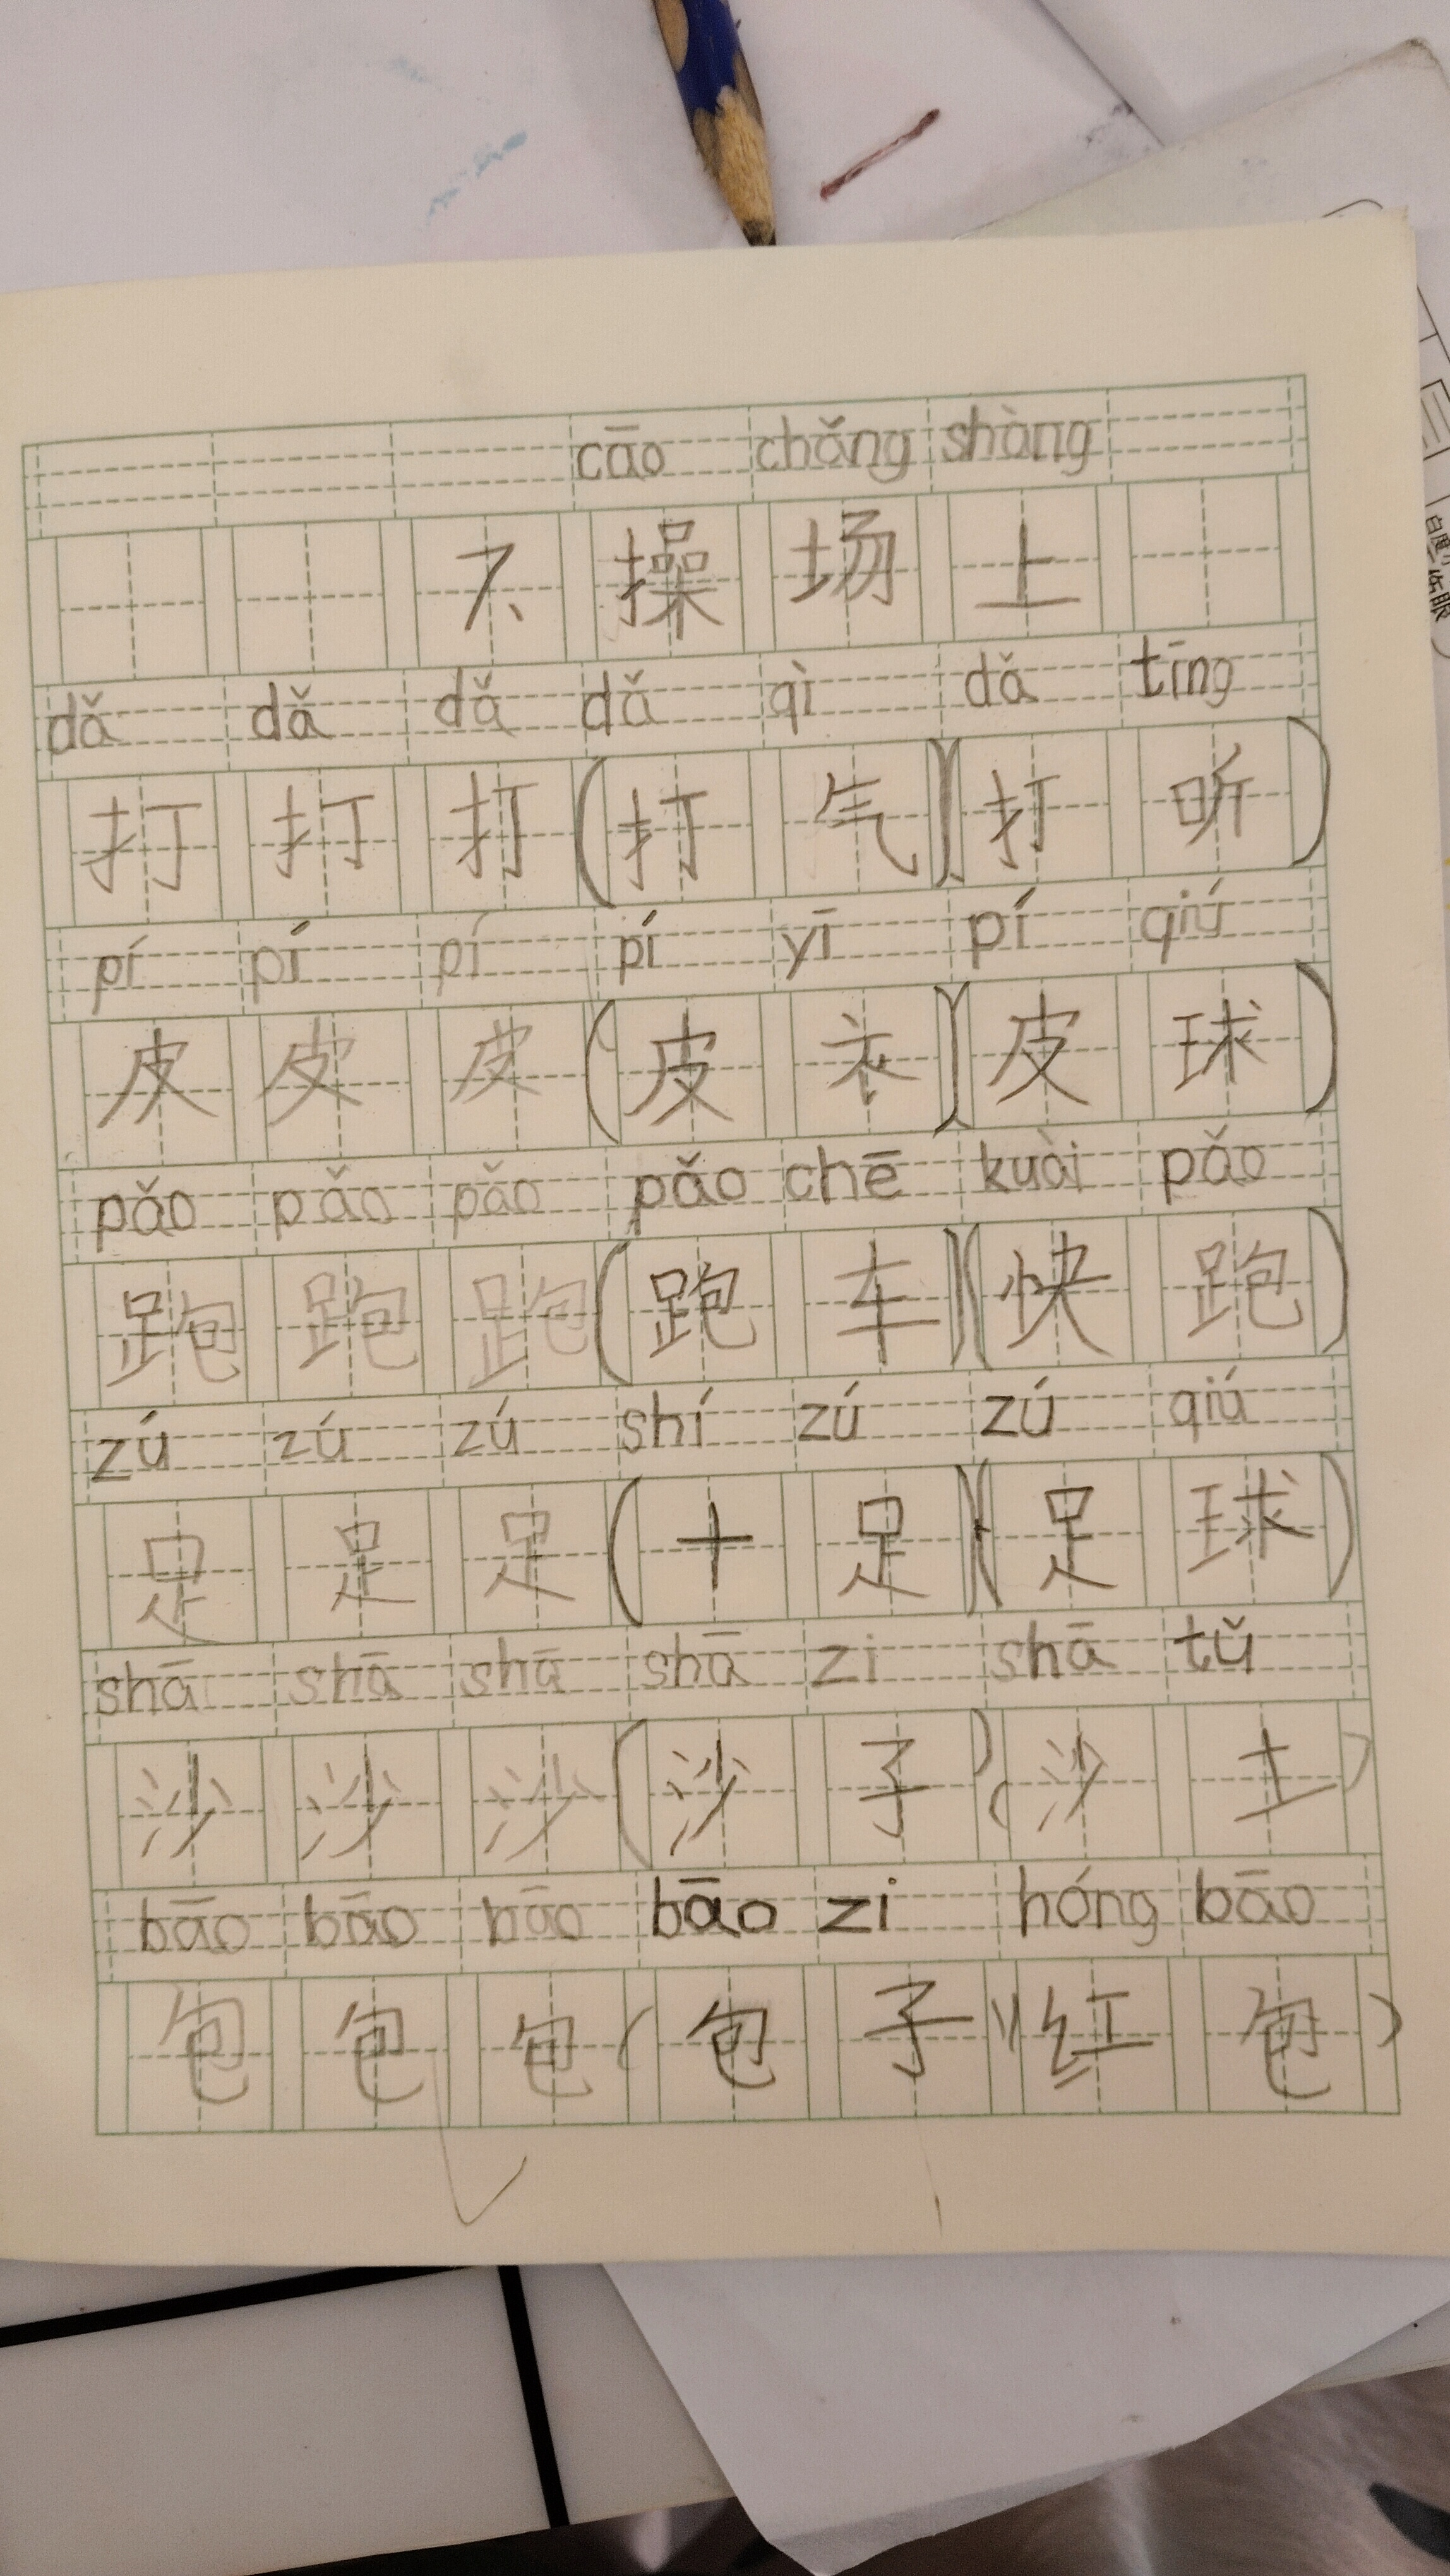 cāo chǎng shàng
7、操场上
dǎ dǎ dǎ dǎ qì dǎ tīng
打打打(打气)(打听)
pí pí pí pí yī pí qiú
皮皮皮(皮衣)(皮球)
pǎo pǎo pǎo pǎo chē kuài pǎo
跑跑跑(跑车)(快跑)
zú zú zú shí zú zú qiú
足足足(十足)(足球)
shā shā shā shā zi shā tǔ
沙沙沙(沙子)(沙土)
bāo bāo bāo bāo zi hóng bāo
包包包(包子)(红包)